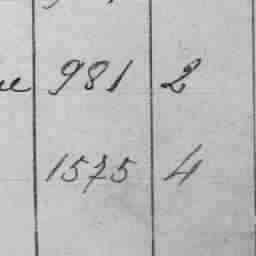 981 2
1575 4